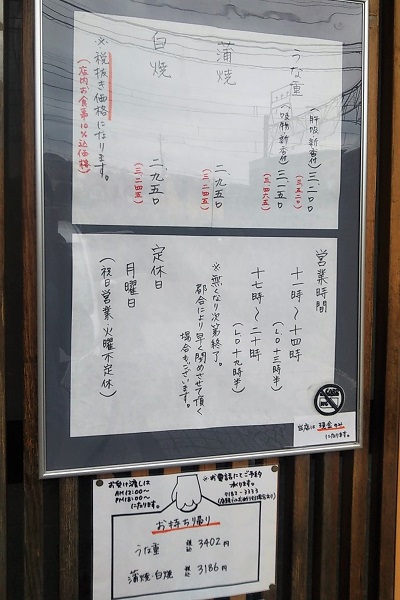 うな重
(肝吸・新香付) 三、二〇〇
(三、五二〇)
(吸物・新香付) 三、一五〇
(三、四六五)
蒲焼 二、九五〇
(三、二四五)
白焼 二、九五〇
(三、二四五)
※税抜き価格になります。
(店内お食事10%込価格)
営業時間
十一時〜十四時
(L.O十三時半)
十七時〜二十時
(L.O十九時半)
※無くなり次第終了。
都合により早く閉めさせて頂く
場合もございます。
定休日
月曜日
(祝日営業・火曜不定休)
当店は現金のみ
になります。
お受け渡しは
AM12:00〜
PM18:00〜
になります。
※お電話にてご予約
承ります。
お持ち帰り
うな重 税込 3402円
蒲焼・白焼 税込 3186円